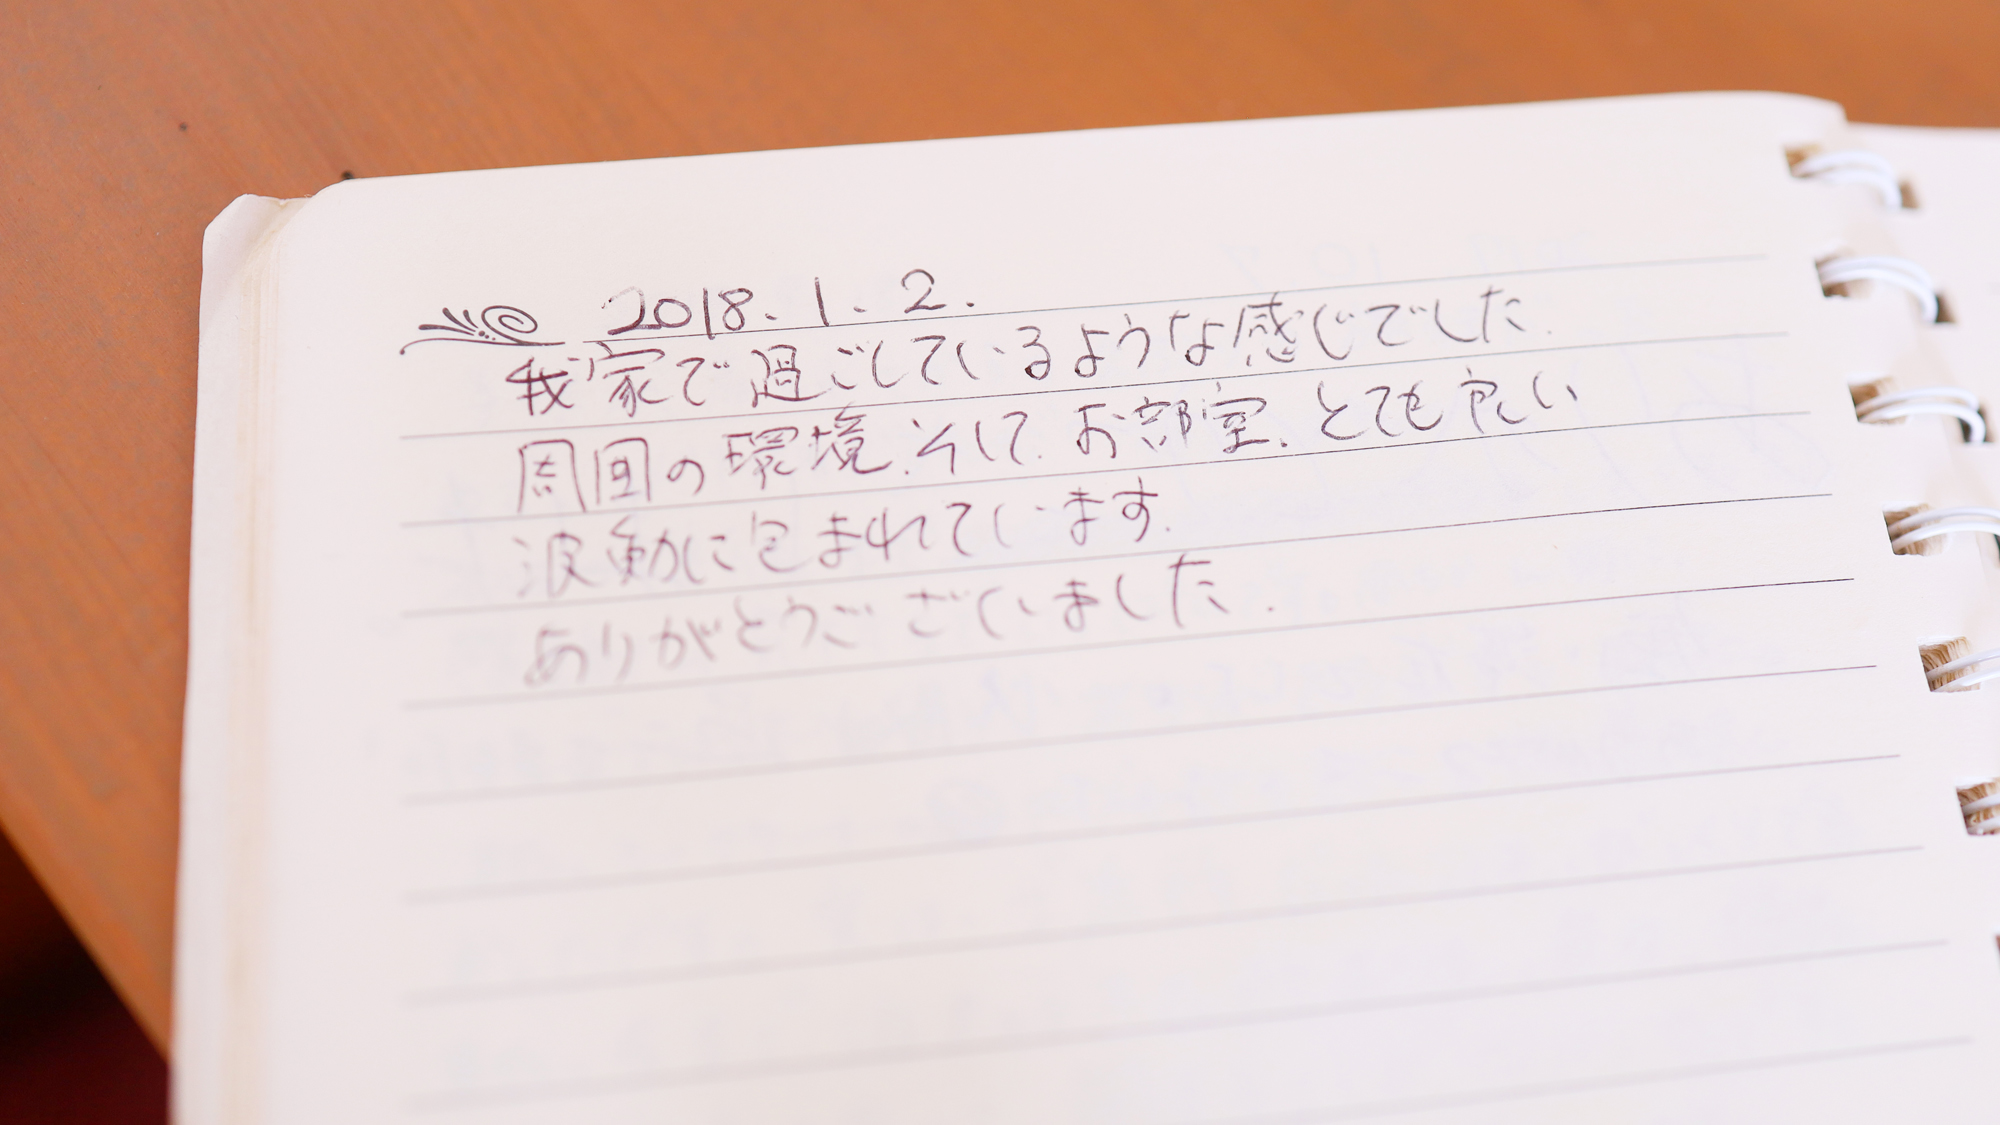 2018.1.2.
我家で過ごしているような感じでした.
周囲の環境.そして.お部屋、とても良い
波動に包まれています.
ありがとうございました.